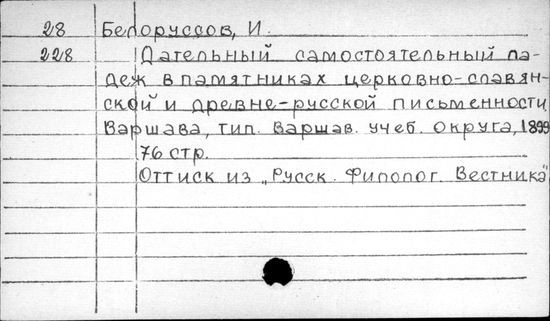 28 Белоруссов, И.
228 Дательный самостоятельный па-
деж в памятниках церковно-славян-
ской и древне-русской письменности
Варшава, тип. Варшав. учеб. округа, 1899
76 стр.
Оттиск из „Русск. Филолог. Вестника"